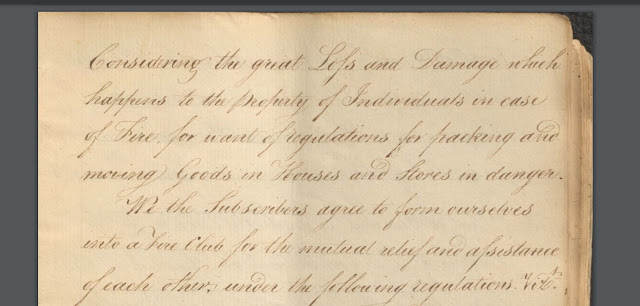 Considering the great Loſs and Damage which
happens to the property of Individuals in case
of Fire, for want of regulations for packing and
moving Goods in Houses and Stores in danger.
We the Subscribers agree to form ourselves
into a Fire Club for the mutual relief and aſsistance
of each other, under the following regulations. Vizt.